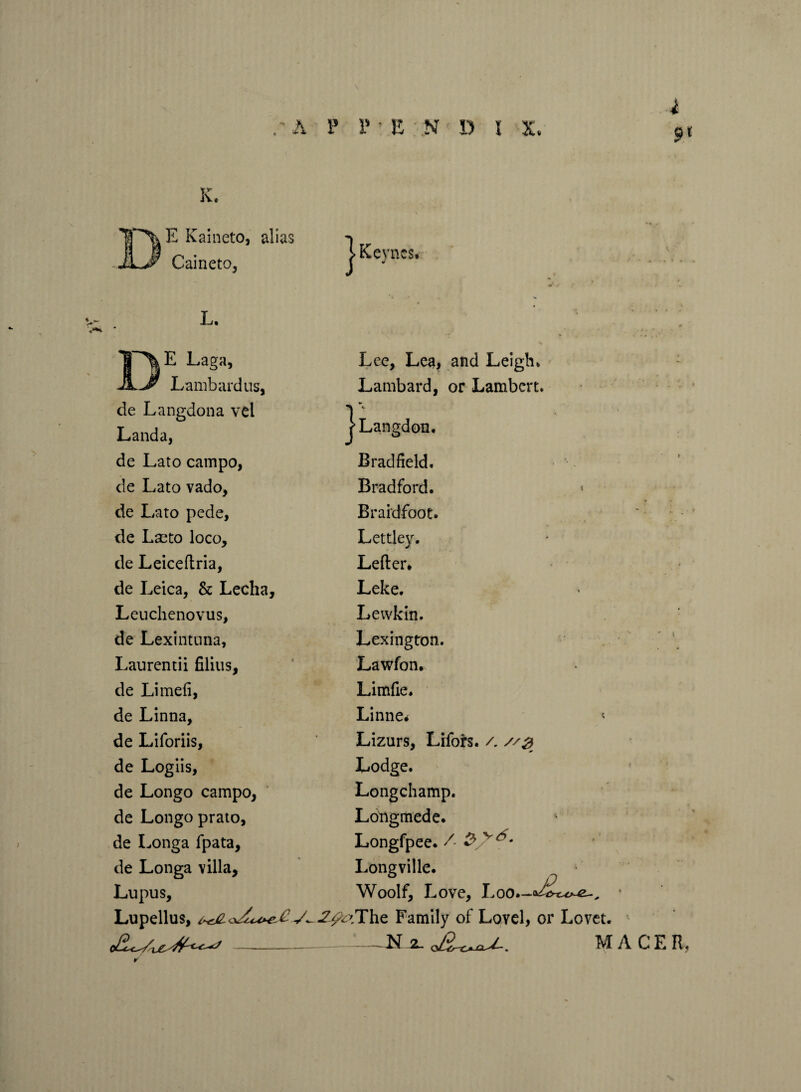 APPENDIX. 91
K.
DE Kaineto, alias
Caineto, } Keynes.
L.
DE Laga, Lee, Lea, and Leigh.
Lambardus, Lambard, or Lambert.
de Langdona vel
Landa, } Langdon.
de Lato campo, Bradfield.
de Lato vado, Bradford.
de Lato pede, Braidfoot.
de Læto loco, Lettley.
de Leiceſtria, Leſter.
de Leica, & Lecha, Leke.
Leuchenovus, Lewkin.
de Lexintuna, Lexington.
Laurentii filius, Lawſon.
de Limeſi, Limſie.
de Linna, Linne.
de Liſoriis, Lizurs, Liſors.
de Logiis, Lodge.
de Longo campo, Longchamp.
de Longo prato, Longmede.
de Longa ſpata, Longſpee.
de Longa villa, Longville.
Lupus, Woolf, Love, Loo.
Lupellus, The Family of Lovel, or Lovet.
N 2 MACER,